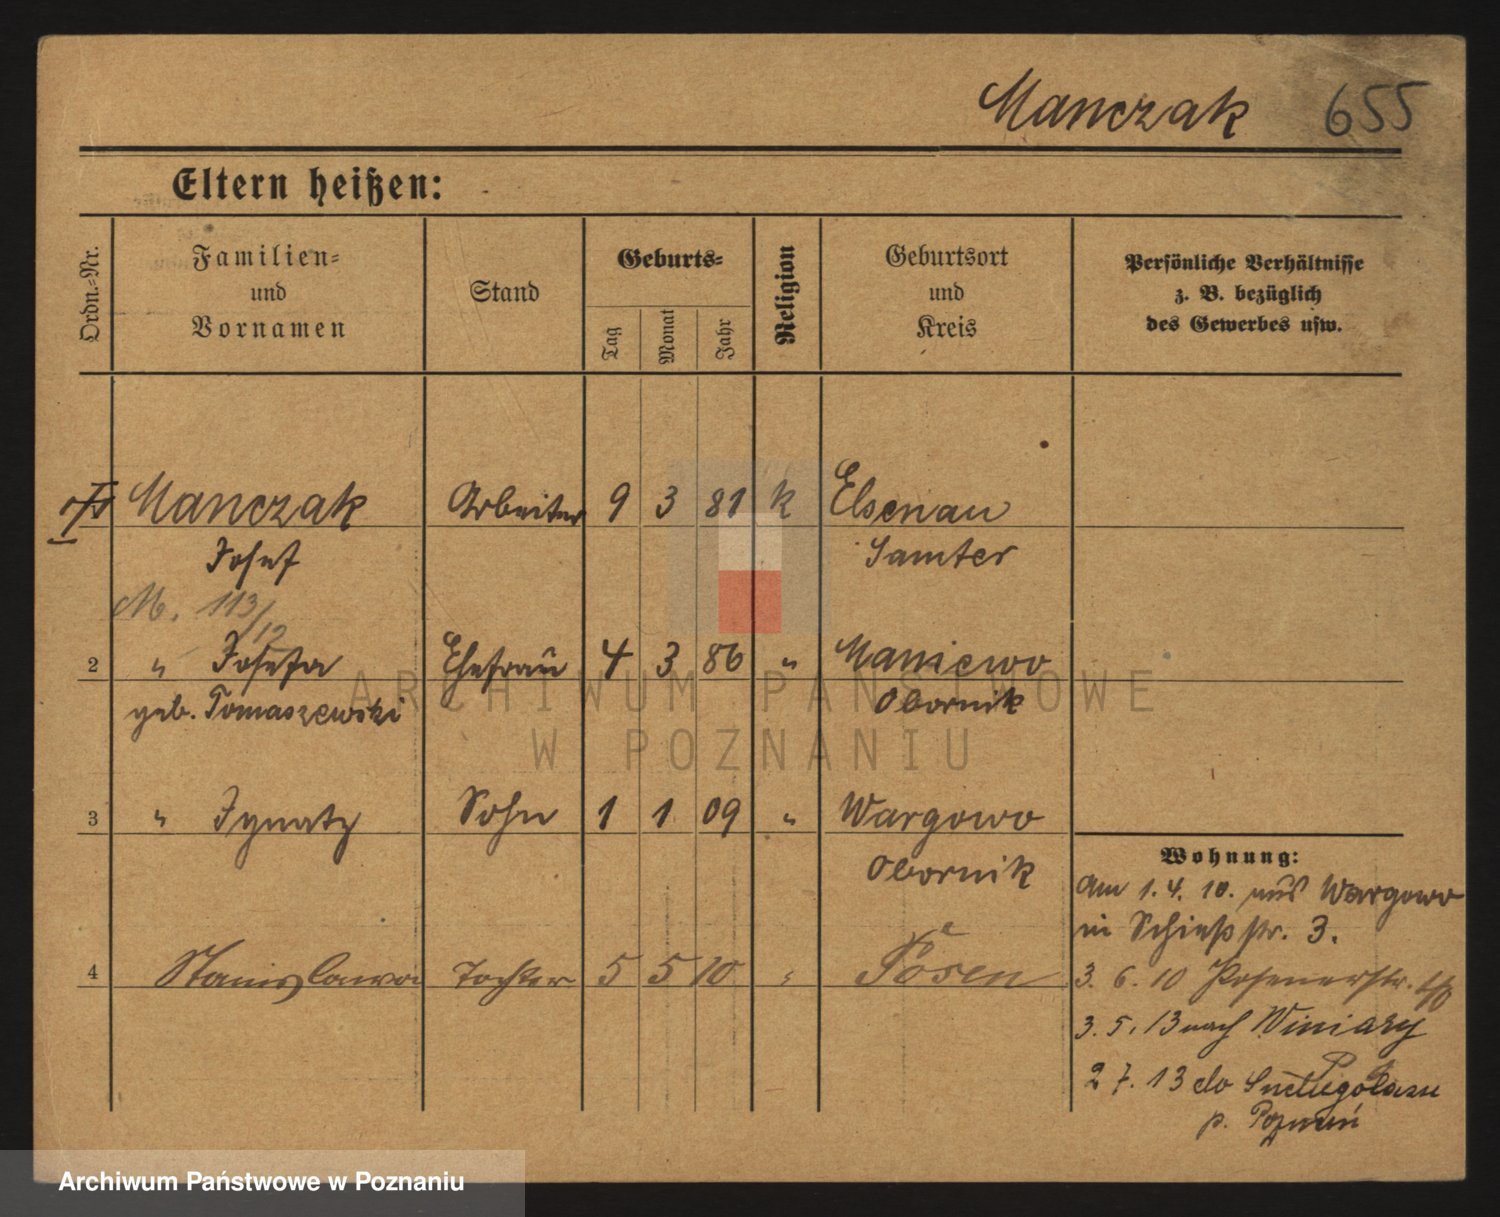 Manczak 655
Eltern heißen:
Ordn.-Nr. Familien- und Vornamen Stand Geburts- Tag Monat Jahr Religion Geburtsort und Kreis Persönliche Verhältnisse z. B. bezüglich des Gewerbes usw.
Manczak Arbeiter 9 3 81 k Elsenau
Josef Samter
M. 113/12
2 " Josefa Ehefrau 4 3 86 " Maniewo
geb. Tomaszewski Obornik
3 " Ignatz Sohn 1 1 09 " Wargowo
Obornik
4 Stanislawa Tochter 5 5 10 " Posen
Wohnung:
Am 1.4.10. aus Wargowo
in Schießstr. 3.
3. 6. 10 Posenerstr.
3. 5. 13 nach Winiary
2 7. 13 do
p. Poznań
ARCHIWUM PAŃSTWOWE
W POZNANIU
Archiwum Państwowe w Poznaniu